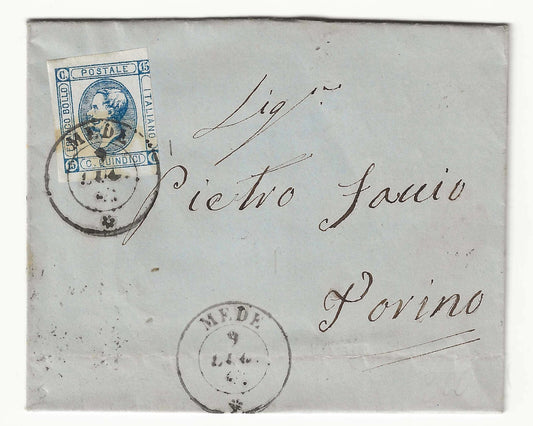 C. POSTALE 15
FRANCO BOLLO
ITALIANO
15 C. QUINDICI
MEDE
9
LUG
Sigr.
Pietro Faccio
Torino
MEDE
9
LUG